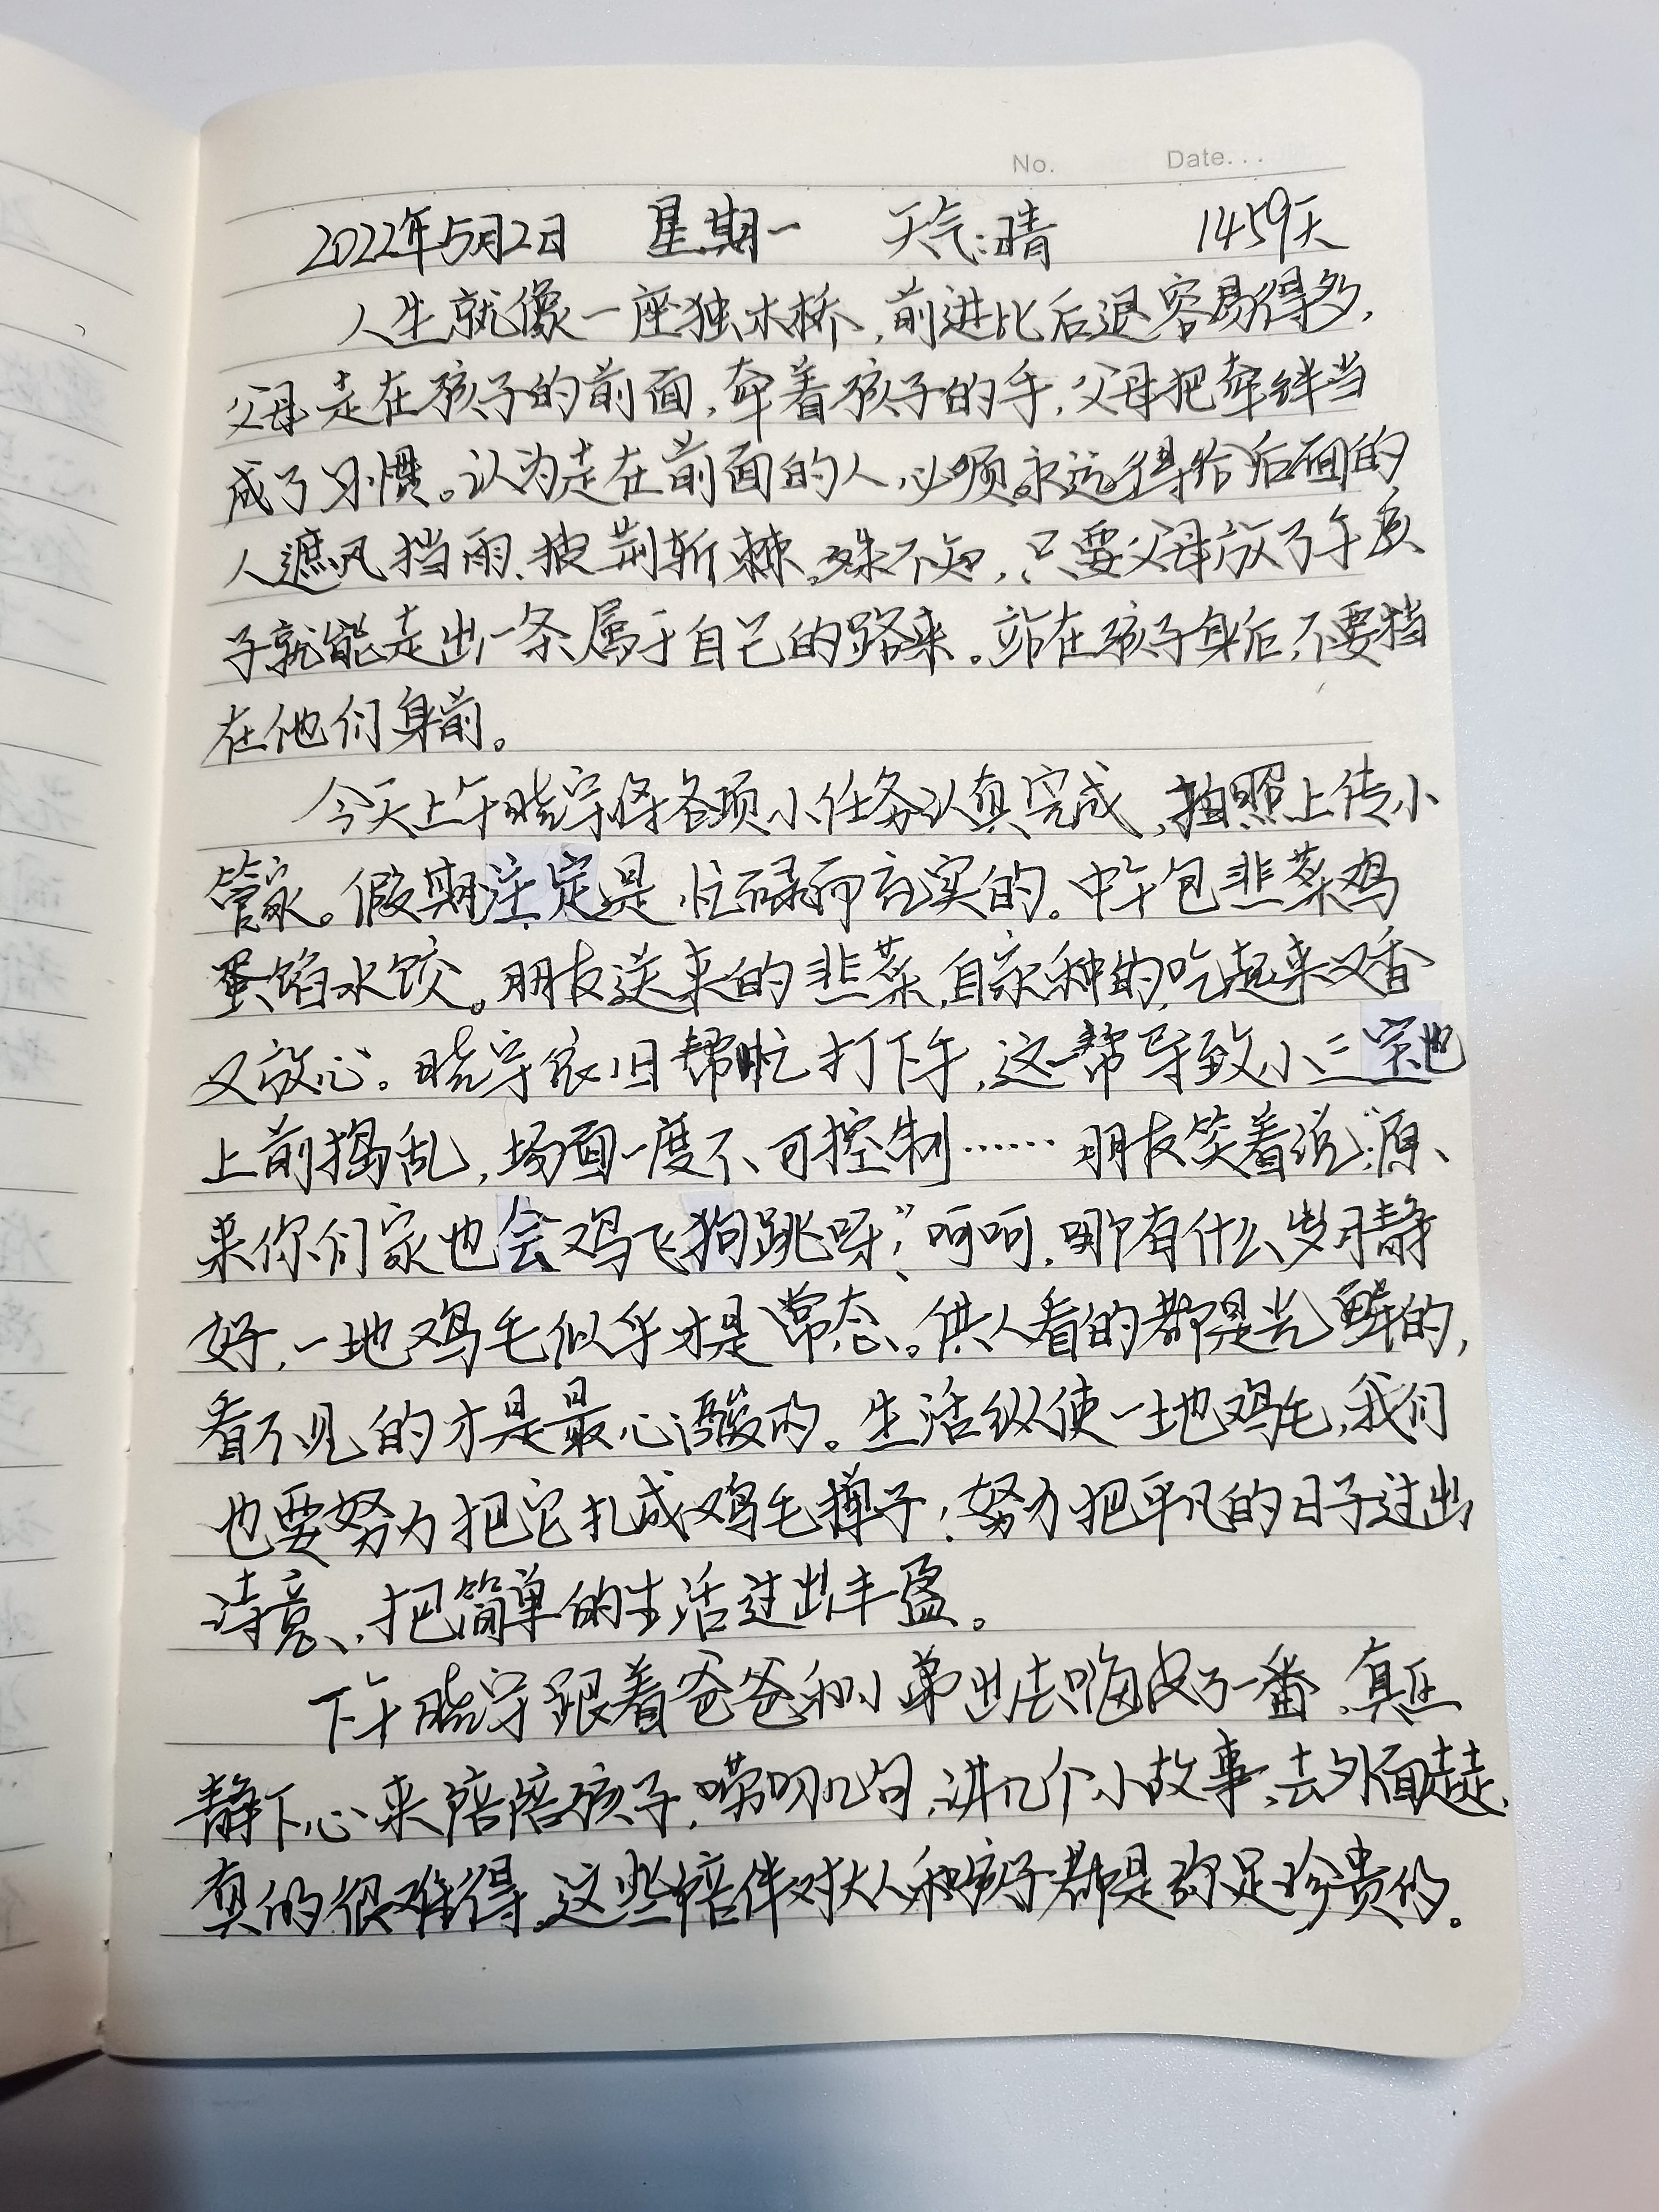 No. Date...
2022年5月2日 星期一 天气:晴 1459天
人生就像一座独木桥,前进比后退容易得多,
父母走在孩子的前面,牵着孩子的手,父母把牵绊当
成了习惯。认为走在前面的人,必须永远得给后面的
人遮风挡雨、披荆斩棘。殊不知,只要父母放了手孩
子就能走出一条属于自己的路来。站在孩子身后,不要挡
在他们身前。
今天上午晓宇将各项小任务认真完成,拍照上传小
管家。假期注定是忙碌而充实的。中午包韭菜鸡
蛋馅水饺。朋友送来的韭菜,自家种的,吃起来又香
又放心。晓宇依旧帮忙打下手,这一帮导致小三宝也
上前捣乱,场面一度不可控制……朋友笑着说:“原
来你们家也会鸡飞狗跳呀”,呵呵,哪有什么岁月静
好,一地鸡毛似乎才是常态。供人看的都是光鲜的,
看不见的才是最心酸的。生活纵使一地鸡毛,我们
也要努力把它扎成鸡毛掸子;努力把平凡的日子过出
诗意、把简单的生活过出丰盈。
下午晓宇跟着爸爸和小弟出去嗨皮了一番,真正
静下心来陪陪孩子,唠叨几句,讲几个小故事,去外面走走,
真的很难得,这些陪伴对大人和孩子都是弥足珍贵的。